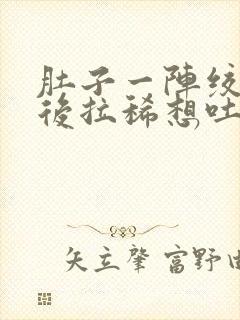 肚子一陣絞
後拉稀想吐
矢立肇 富野由